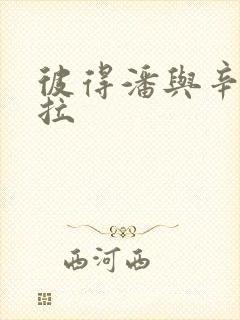 彼得潘與辛
拉
西河西